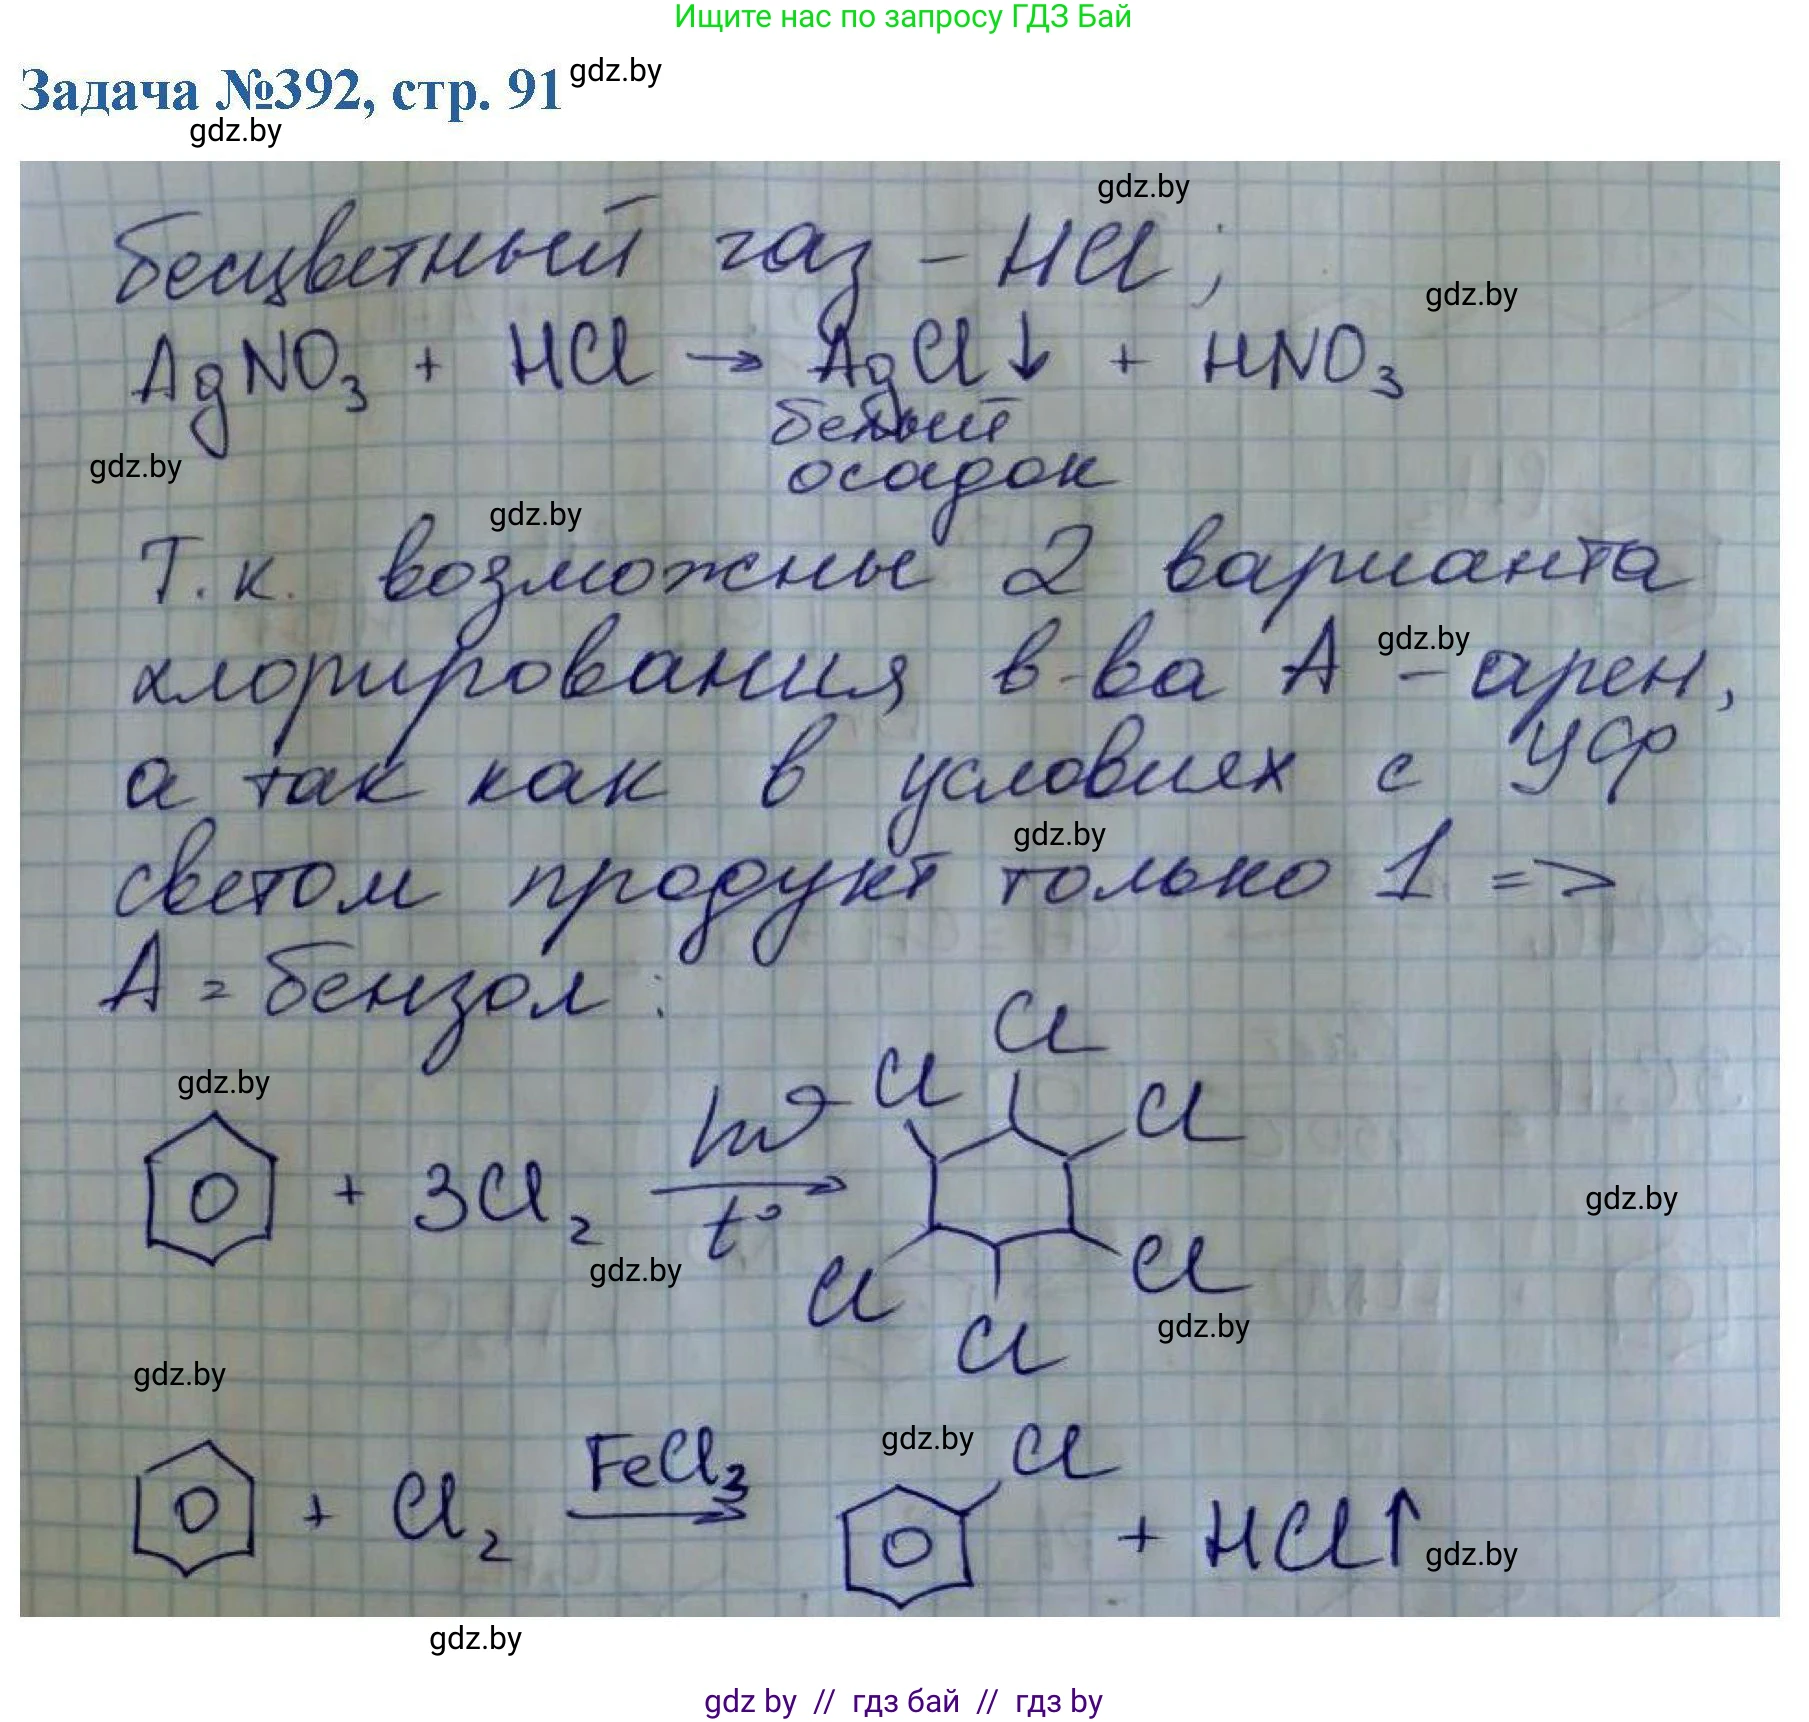 Ищите нас по запросу ГДЗ Бай
Задача №392, стр. 91
gdz.by
gdz.by
gdz.by
бесцветный газ - HCl;
gdz.by
AgNO3 + HCl → AgCl↓ + HNO3
белый
осадок
gdz.by
gdz.by
Т.к. возможны 2 варианта
gdz.by
хлорирования в-ва А - арен,
а так как в условиях с УФ
gdz.by
светом продукт только 1 =>
А = бензол:
gdz.by
Cl
Cl
Cl
+ 3Cl2 hν t° →
gdz.by
gdz.by
Cl
Cl
Cl
gdz.by
gdz.by
gdz.by
Cl
+ Cl2 FeCl3 → + HCl↑
gdz.by
gdz.by
gdz by // гдз бай // гдз by